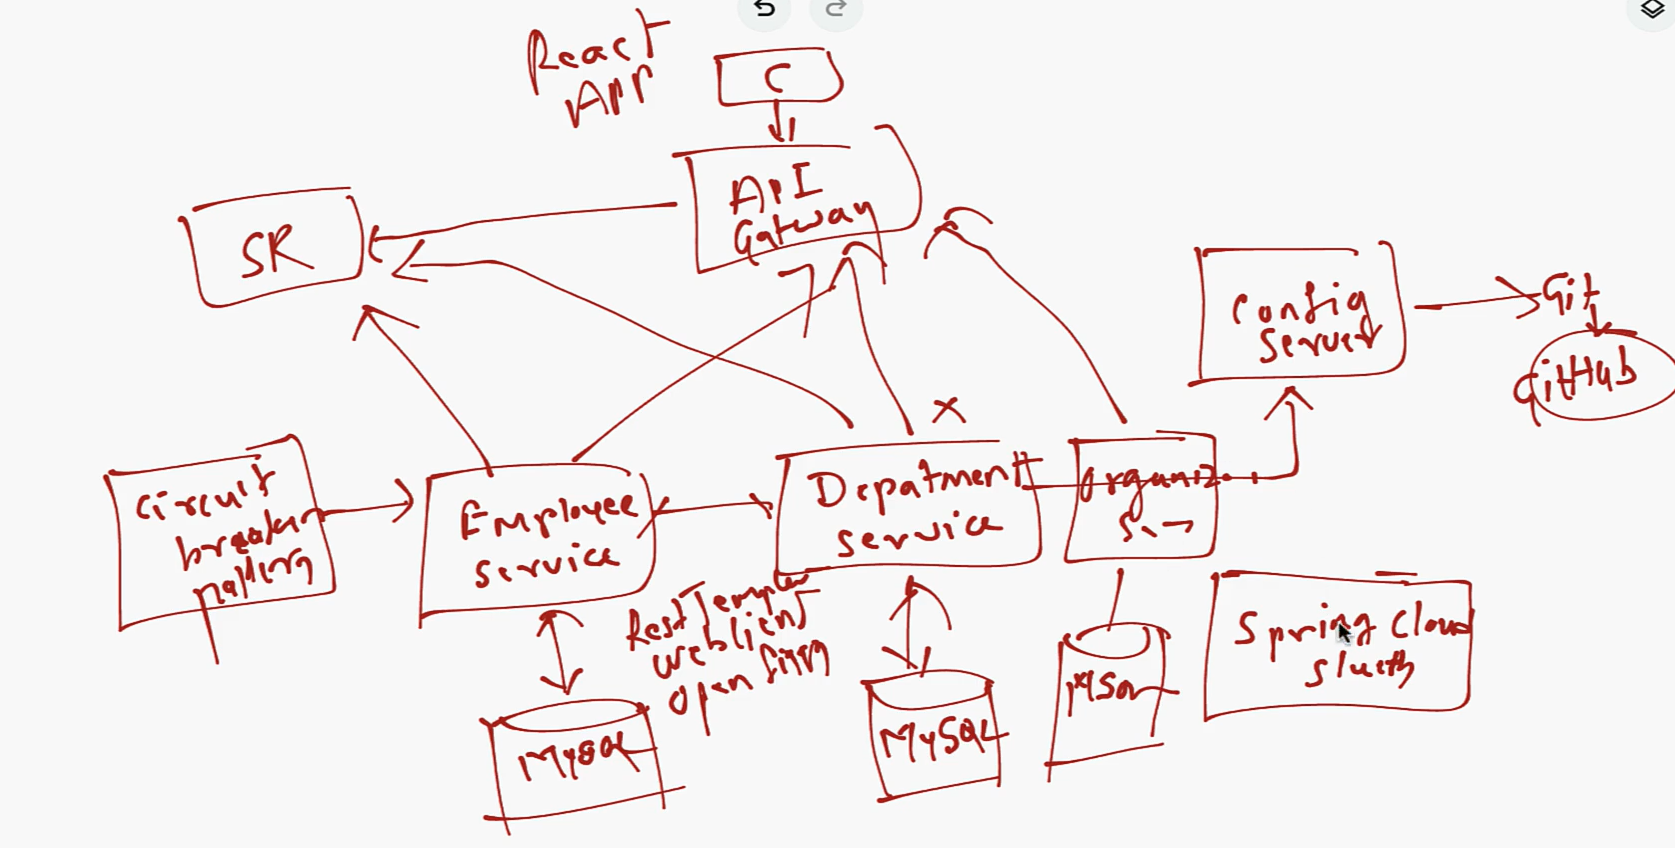 React
App
C
API
Gateway
SR
Config
Server
Git
GitHub
Circuit
breaker
pattern
Employee
service
Depatment
service
Organiz
S
RestTemplate
webclient
open feign
MySQL
MySQL
MySQL
Spring Cloud
Sluth